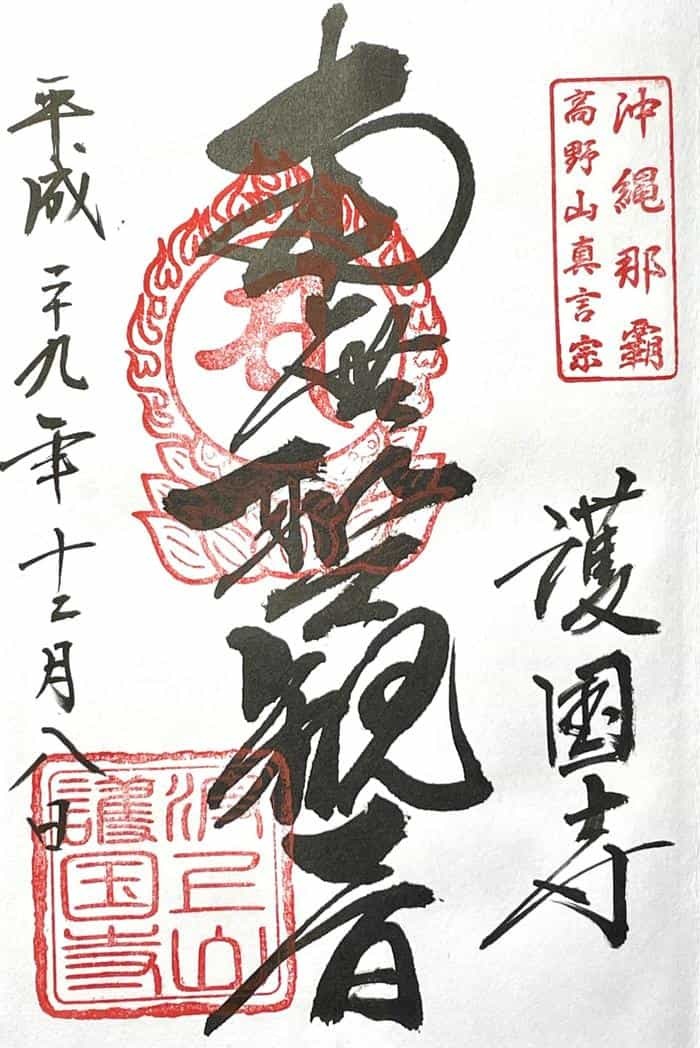 沖縄那覇
高野山真言宗
護国寺
南無聖観音
平成二十九年十二月八日
波上山
護国寺